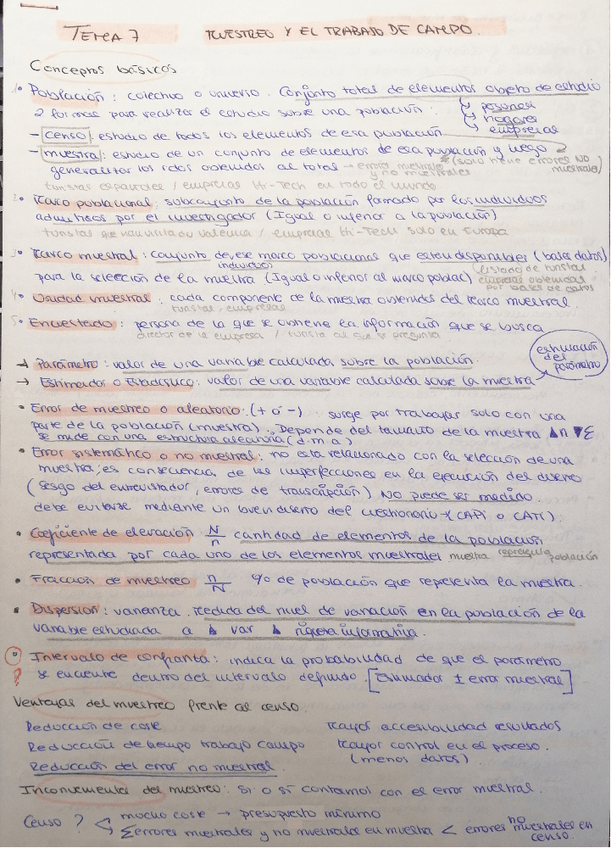 TEMA 7 MUESTREO Y EL TRABAJO DE CAMPO.
Conceptos básicos
• Población: colectivo o universo. Conjunto total de elementos objeto de estudio
2 formas para realizar el estudio sobre una población: personas
hogares
- censo: estudio de todos los elementos de esa población empresas
- muestra: estudio de un conjunto de elementos de esa población y luego
generalizar los rdos obtenidos al total → errores muestrales y no muestrales (solo tiene errores NO muestrales)
turistas españoles / empresas Hi-Tech en todo el mundo
• Marco poblacional: subconjunto de la población formado por los individuos
admitidos por el investigador (Igual o inferior a la población)
turistas que han visitado Valencia / empresas Hi-Tech solo en Europa
• Marco muestral: conjunto de ese marco poblacional que esten disponibles (bases datos)
individuos listado de turistas
para la selección de la muestra (Igual o inferior al marco poblac) empresas obtenidas por bases de datos
• Unidad muestral: cada componente de la mestra obtenidos del marco muestral
turistas, empresas
5. Encuestado: persona de la que se obtiene la información que se busca
director de la empresa / turista al que se pregunta
→ Parámetro: valor de una variable calculada sobre la población. estimación del parámetro
→ Estimador o Estadístico: valor de una variable calculada sobre la muestra
• Error de muestreo o aleatorio: (+ o -) surge por trabajar solo con una
parte de la población (muestra). Depende del tamaño de la muestra ▲n ▼E
se mide con una estructura aleatoria (d.m.a)
• Error sistemático o no muestral: no esta relacionado con la selección de una
muestra, es consecuencia de las imperfecciones en la ejecución del diseño
(sesgo del entrevistador, errores de transcripción) NO puede ser medido.
debe evitarse mediante un buen diseño del cuestionario + (CAPI o CATI)
• Coeficiente de elevación N/n cantidad de elementos de la población
representada por cada uno de los elementos muestrales muestra representa población
• Fracción de muestreo n/N % de población que representa la muestra.
• Dispersión: varianza. Medida del nivel de variación en la población de la
variable estudiada a ▲ var ▲ riqueza informativa.
• Intervalo de confianza: indica la probabilidad de que el parámetro
? se encuentre dentro del intervalo definido. [Estimador ± error muestral]
Ventajas del muestreo frente al censo.
Reducción de coste Mayor accesibilidad resultados
Reducción de tiempo trabajo campo Mayor control en el proceso.
Reducción del error no muestral (menos datos)
Inconvenientes del muestreo: si o si contamos con el error muestral.
Censo? < mucho coste → presupuesto mínimo
Σ errores muestrales y no muestrales en muestra < errores no muestrales en censo.